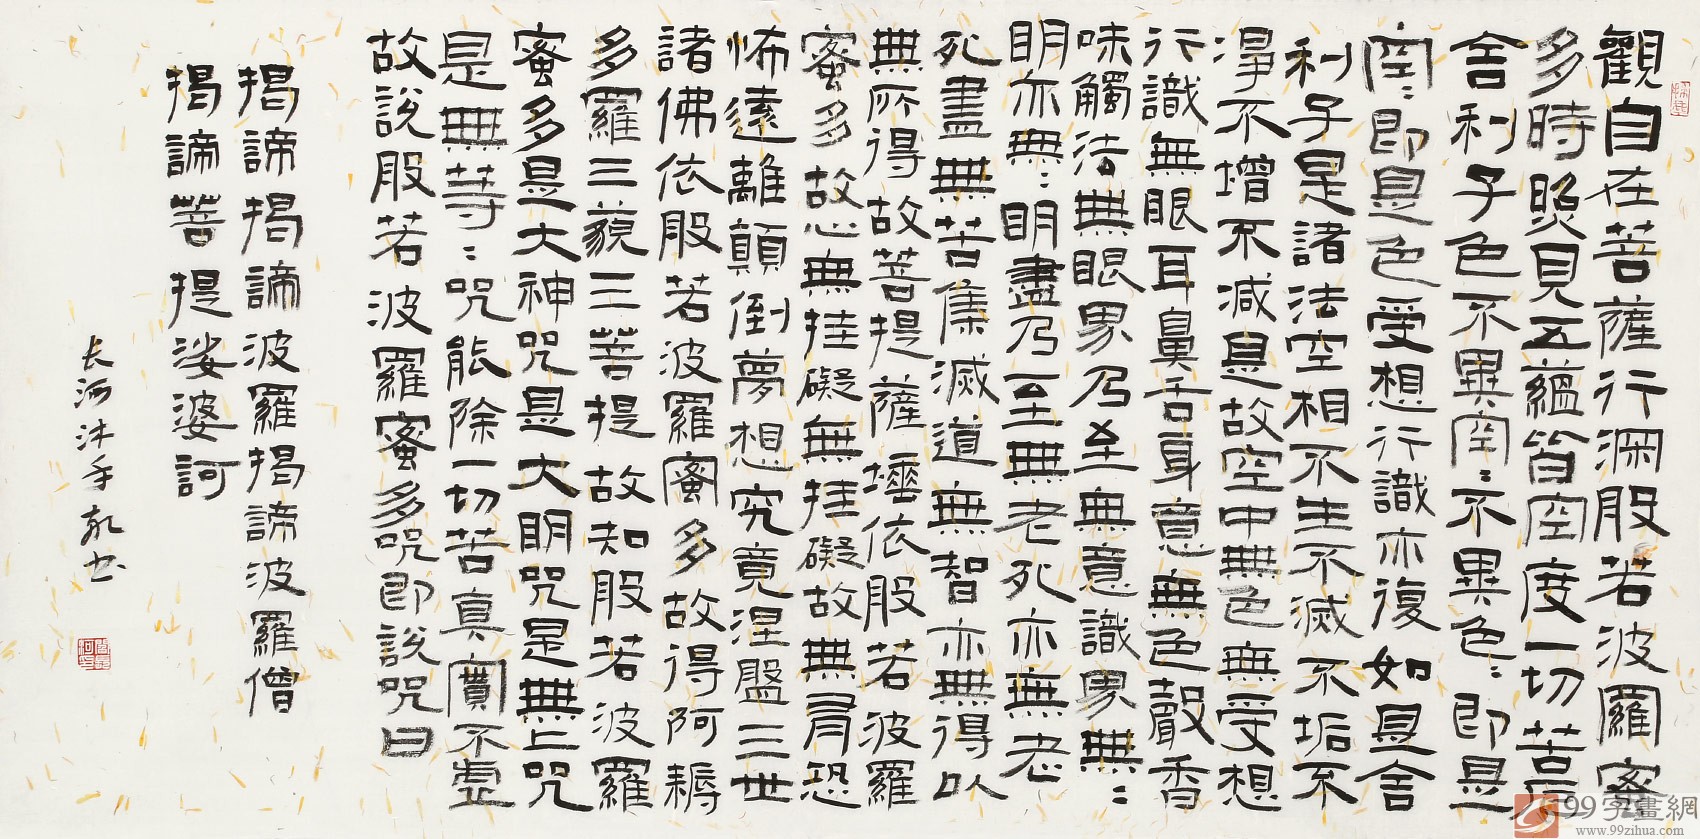 觀自在菩薩行深般若波羅蜜
多時照見五蘊皆空度一切苦厄
舍利子色不異空：不異色：即是
空：即是色受想行識亦復如是舍
利子是諸法空相不生不滅不垢不
淨不增不減是故空中無色無受想
行識無眼耳鼻舌身意無色聲香
味觸法無眼界乃至無意識界無：
明亦無：明盡乃至無老死亦無老
死盡無苦集滅道無智亦無得以
無所得故菩提薩埵依般若波羅
蜜多故心無挂礙無挂礙故無有恐
怖遠離顛倒夢想究竟涅盤三世
諸佛依般若波羅蜜多故得阿耨
多羅三藐三菩提故知般若波羅
蜜多是大神咒是大明咒是無上咒
是無等：咒能除一切苦真實不虛
故說般若波羅蜜多咒即說咒曰
揭諦揭諦波羅揭諦波羅僧
揭諦菩提娑婆訶
长河沐手敬书
99字畫網
www.99zihua.com